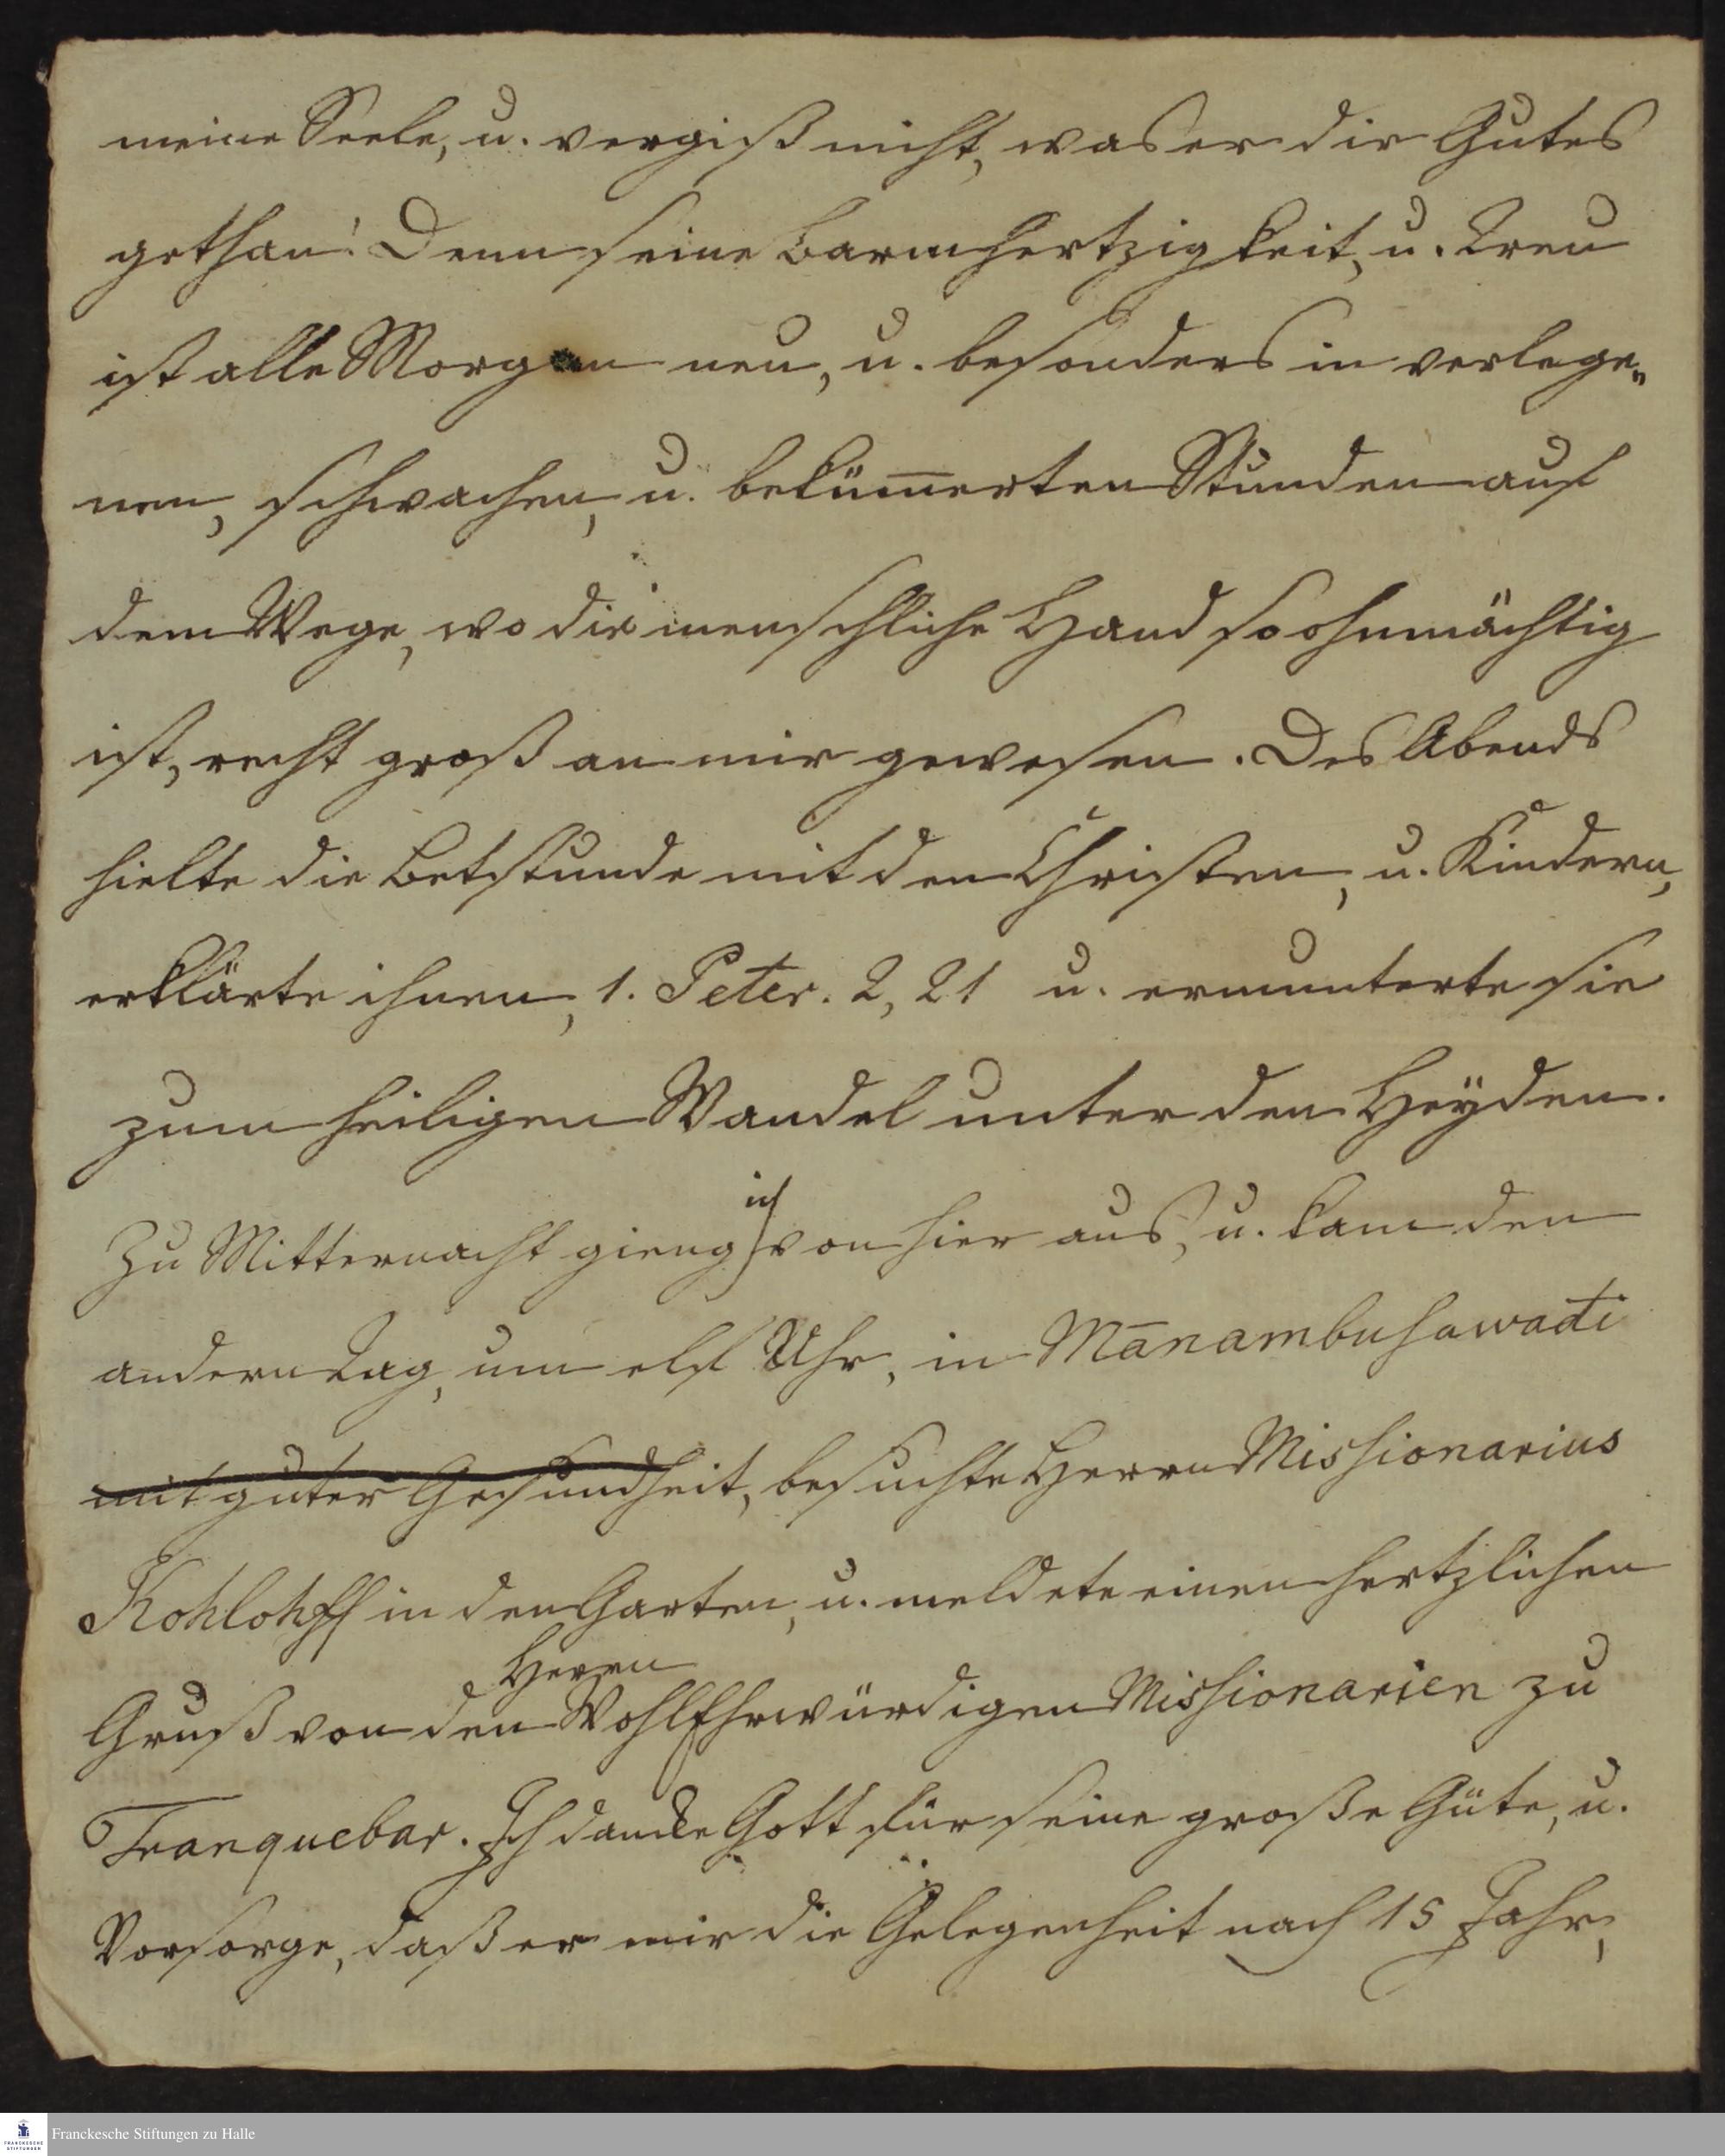 meine Seele, u. vergiß nicht, was er dir Gutes
gethan! Denn seine Barmhertzigkeit, u. Treu
ist alle Morgen neu, u. besonders in verlege„
nen, schwachen, u. beküm̅erten Stunden auf
dem Wege, wo die menschliche Hand so ohnmächtig
ist, recht groß an mir gewesen. Des Abends
hielte die Betstunde mit den Christen, u. Kindern,
erklärte ihnen, 1. Peter. 2, 21 u. ermunterte sie
zum heiligen Wandel unter den Heÿden.
ich
Zu Mitternacht gieng von hier aus, u. kam den
andern Tag, um elf Uhr, in Mānambuhawadi
mit guter Gesundheit, besuchte Herrn Missionarius
Kohlohff in den Garten, u. meldete einen hertzlichen
Herrn
Gruß von den WohlEhrwürdigen Missionarien zu
Tranquebar. Ich dancke Gott für seine große Güte, u.
Vorsorge, daß er mir die Gelegenheit nach 15 Jahr,
Franckesche Stiftungen zu Halle
FRANCKESCHE
STIFTUNGEN